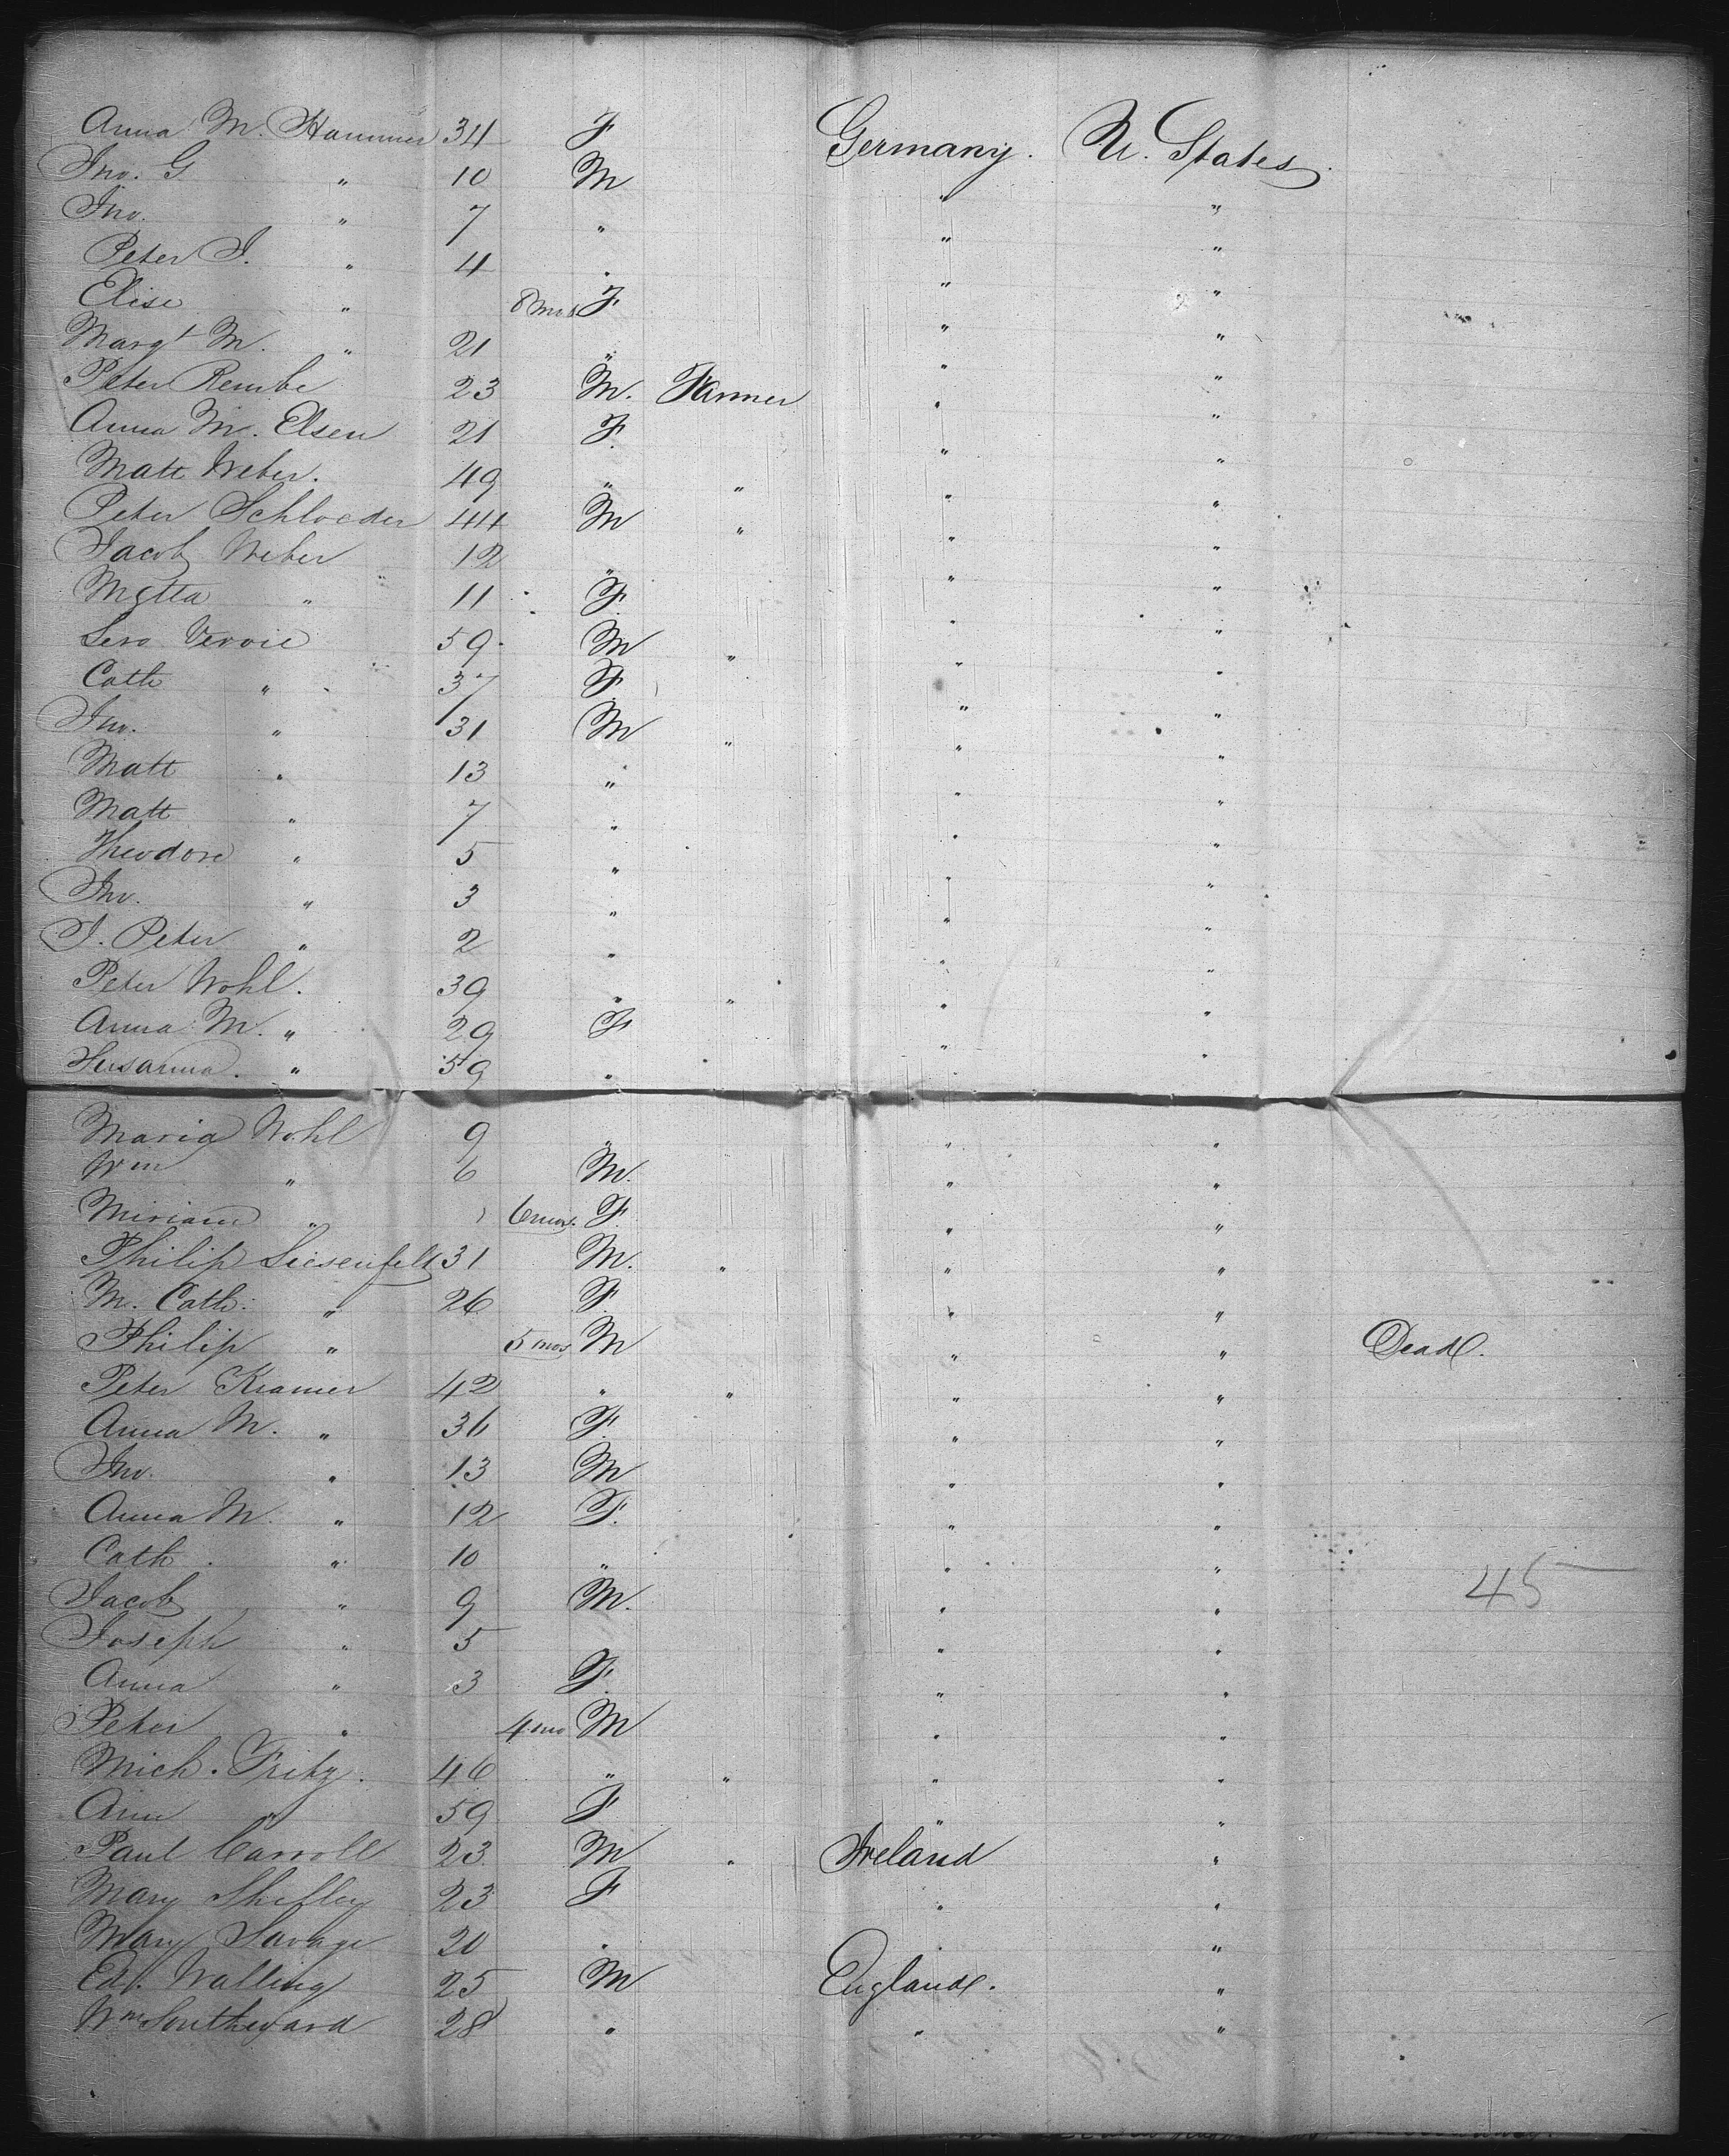 Anna M. Hammer 34 F Germany. U. States.
Jno. G " 10 M " "
Jno. " 7 " " "
Peter J. " 4 " " "
Elise " 8 mos F " "
Margt M. " 21 " " "
Peter Rembe 23 M. Farmer " "
Anna M. Elsen 21 F. " "
Matt Weber. 49 " " " "
Peter Schloeder 44 M " " "
Jacob Weber 12 " " "
Metta " 11 F. " "
59 M " " "
Cath " 37 F. " "
Jno. " 31 M " " "
Matt " 13 " " "
Matt " 7 " " "
Theodore " 5 " " "
Jno. " 3 " " "
J. Peter " 2 " " "
Peter Wohl. 39 " " " "
Anna M. " 29 F " "
Susanna. " 59 " " "
Maria Wohl 9 " " "
Wm " 6 M. " "
Miriam " 6 mos. F. " "
Philip Liesenfelt 31 M. " " "
M. Cath: " 26 F. " "
Philip " 5 mos M " " Dead.
Peter Kramer 42 " " " "
Anna M. " 36 F. " "
Jno. " 13 M " "
Anna M. " 12 F. " "
Cath. " 10 " " "
Jacob " 9 M. " " 45
Joseph " 5 " "
Anna " 3 F. " "
Peter " 4 mo M " "
Mich. Fritz. 46 " " " "
Ann " 59 F " "
Paul Carroll 23 M " Ireland "
Mary 23 F " "
Mary Savage 20 " "
Ed. Walling 25 M England. "
Wm Southward 28 " " "